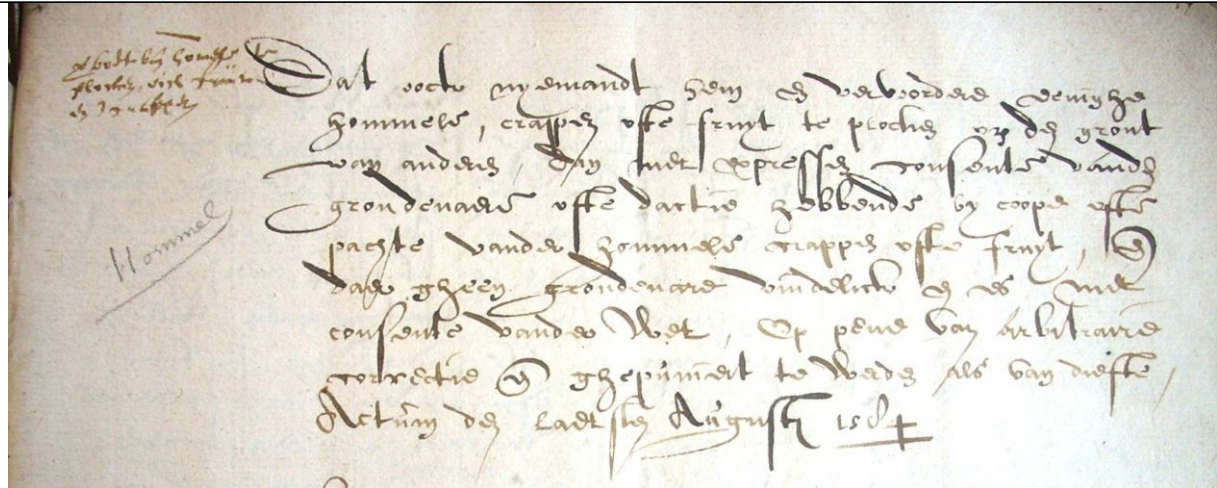 hommele te
plocken ofte fruyt
Dat oock nyemandt hem en vervoordere eenighe
hommele, crappen ofte fruyt te plocken up den gront
van anderen, dan met expressen consente vanden
grondenaere ofte dactie hebbende by coope ofte
pachte vander hommele crappen ofte fruyt, en
daer gheen grondenare vindelick en es met
consente vander Wet, Op pene van arbitraire
correctie en ghepuniert te werden als van diefte,
Actum den laetsten Augusti 1584
Hommel